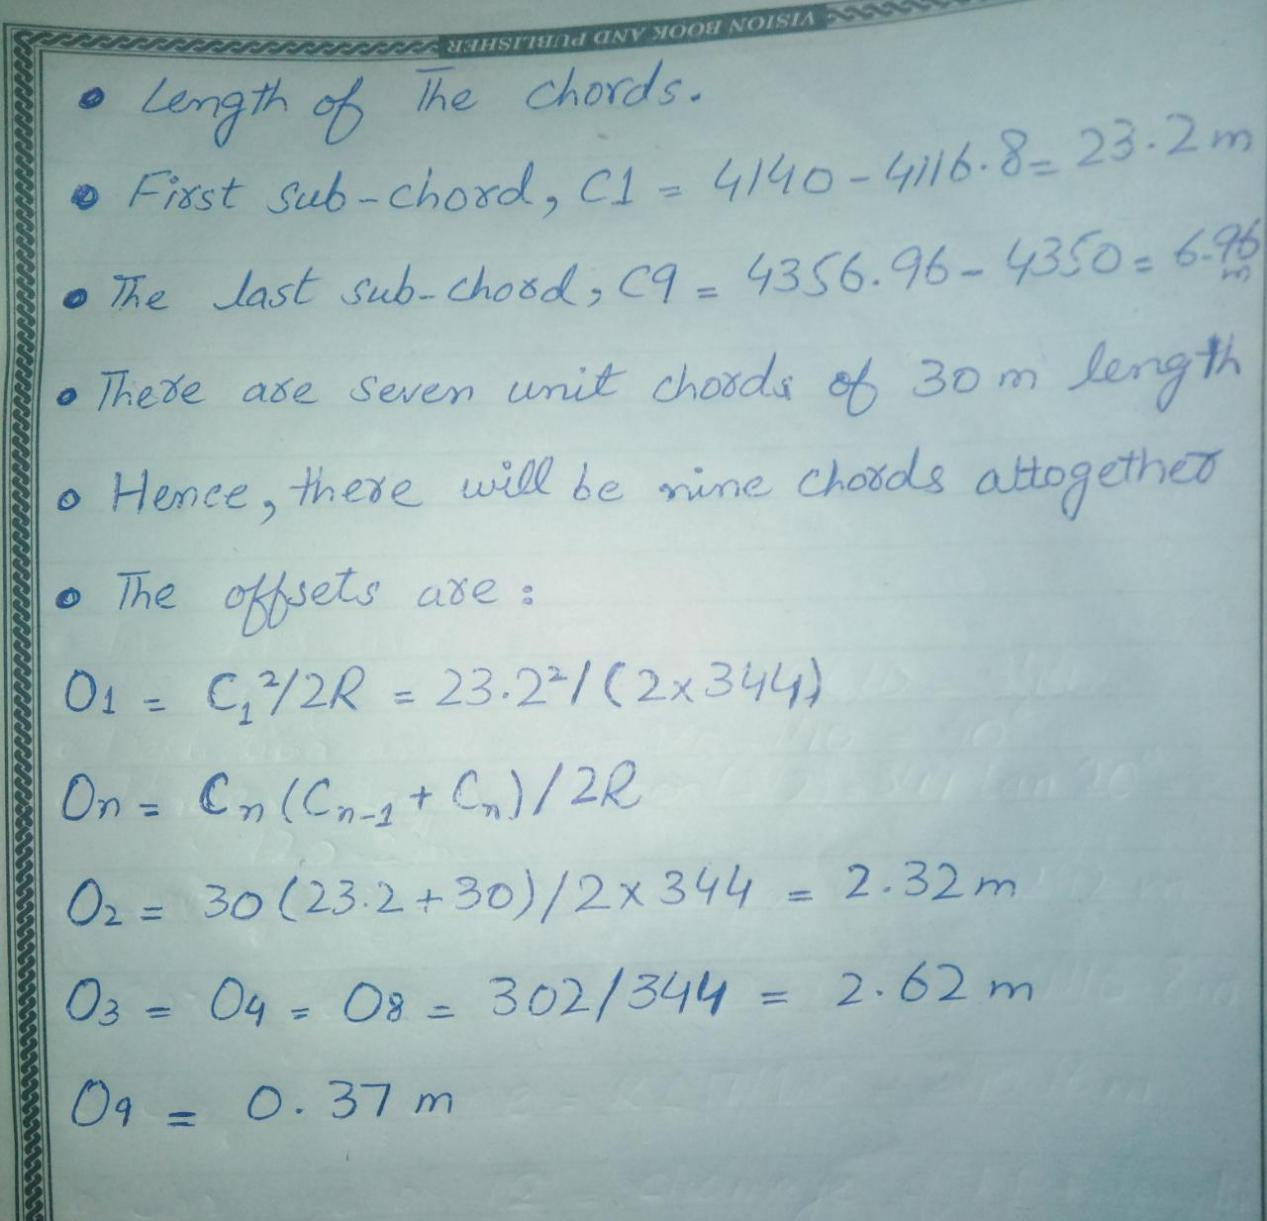 VISION BOOK AND PUBLISHER
• Length of The chords.
• First sub-chord, C1 = 4140 - 4116.8 = 23.2 m
• The last sub-chord, C9 = 4356.96 - 4350 = 6.96 m
• There are seven unit chords of 30 m length
• Hence, there will be nine chords attogether
• The offsets are :
O1 = C₁²/2R = 23.2²/(2×344)
On = Cn(Cn-1 + Cn)/2R
O2 = 30(23.2+30)/2×344 = 2.32 m
O3 = O4 = O8 = 302/344 = 2.62 m
O9 = 0.37 m